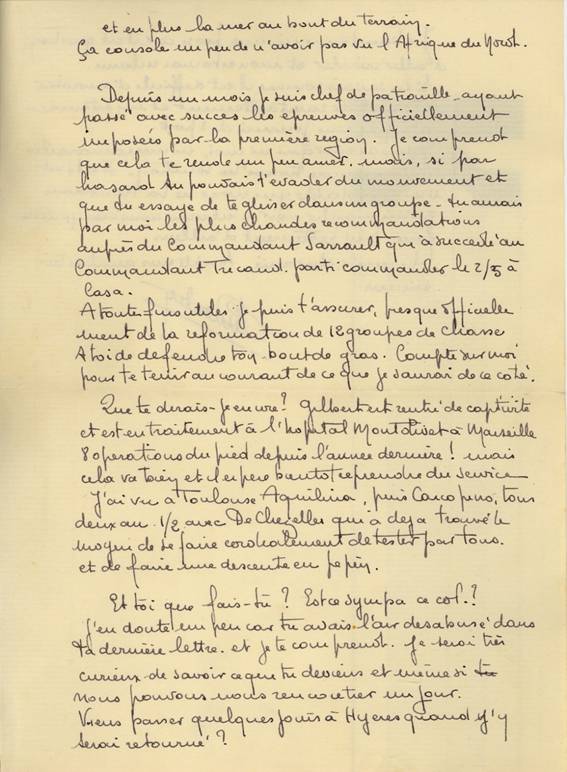 et en plus la mer au bout du terrain.
Ça console un peu de n'avoir pas vu l'Afrique du Nord.
Depuis un mois je suis chef de patrouille - ayant
passé avec succes les epreuves officiellement
imposées par la première region. Je comprend
que cela te rende un peu amer. mais, si par
hasard tu pouvais t'evader du mouvement et
que tu essaye de te glisser dans un groupe - tu aurais
par moi les plus chaudes recommandations
auprès du Commandant Sarrault qui à succedé au
Commandant Tricaud. parti commander le 2/5 à
Casa.
A toutes fins utiles je puis t'assurer, presque officielle
ment de la reformation de 18 groupes de chasse
A toi de defendre ton bout de gras. Compte sur moi
pour te tenir au courant de ce que je saurai de ce coté.
Que te dirais-je encore? Gilbert est rentré de captivité
et est en traitement à l'hopital Montolivet à Marseille
8 operations du pied depuis l'année derniere! mais
cela va bien et il espere bientot reprendre du service
J'ai vu a Toulouse Aquilina, puis Carcopino, tous
deux au 1/2 avec De Chezelles qui à deja trouvé le
moyen de se faire cordialement detester par tous.
et de faire une descente en pepin.
Et toi que fais-tu? Est ce sympa ce col.?
J'en doute un peu car tu avais l'air desabusé dans
ta dernière lettre. et je te comprend. Je serai très
curieux de savoir ce que tu deviens et même si tu
nous pouvons nous rencontrer un jour.
Viens passer quelques jours à Hyeres quand j'y
serai retourné?